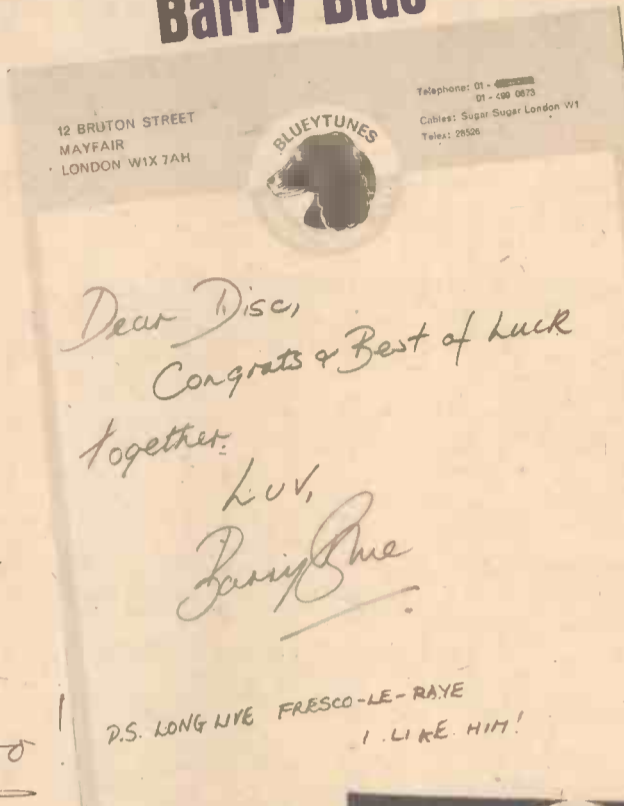 Barry Blue
12 BRUTON STREET
MAYFAIR
LONDON W1X 7AH
BLUEYTUNES
Telephone: 01 -
01 - 499 0873
Cables: Sugar Sugar London W1
Telex: 28526
Dear Disc,
Congrats & Best of Luck
together.
Luv,
Barry Blue
P.S. LONG LIVE FRESCO-LE-RAYE
I LIKE HIM!